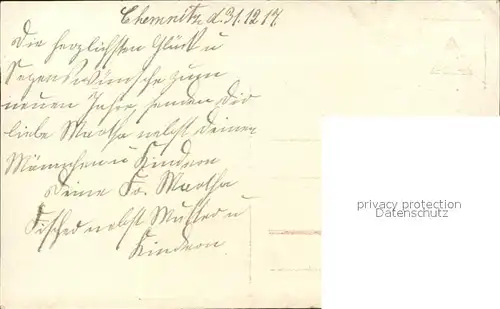 Chemnitz d. 31.12.17.
Die herzlichsten Glück u
Segenswünsche zum
neuen Jahre, senden Dir
liebe Martha nebst Deinen
Männchen u Kindern
Deine Fr. Martha
Fischer nebst Mutter u
Kindern
PRIVACY PROTECTION
Datenschutz